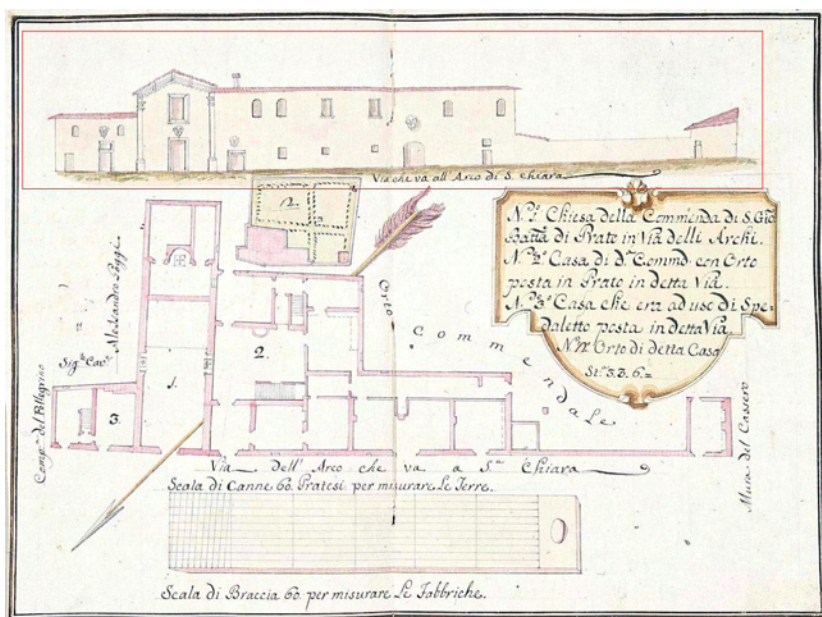 Via che va all' Arco di S. Chiara
N.º 1º Chiesa della Commenda di S. Gio
Batta di Prato in Via delli Archi.
N.º 2º Casa di d.ª Commd. con Orto
posta in Prato in detta Via.
N.º 3º Casa che era ad uso di Spe=
daletto posta in detta Via
N.º 12 Orto di detta Casa
St.ª 3.3.6.=
12.
Orto
Commendale
Sig.re Cav.re
Alessandro Poggi
Comp.ª del Pellegrino
1.
2.
3.
Mura del Cassero
Via dell' Arco che va a S.ta Chiara
Scala di Canne 60. Pratesi per misurare Le Terre.
Scala di Braccia 60. per misurare Le Fabbriche.